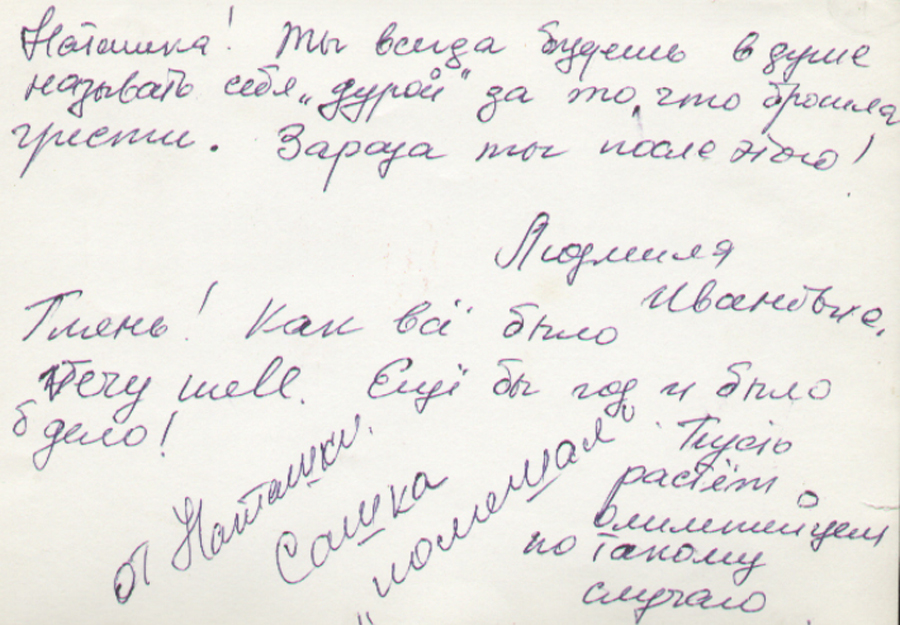 Наташка! Ты всегда будешь в душе
называть себя „дурой" за то, что бросила
грести. Зараза ты после этого!
Людмила
Ивановна.
Глянь! Как всё было
Ещё бы год и было
б дело!
от Наташки.
Сашка
„помешал"
Пусть
растёт
олимпийцем
по такому
случаю